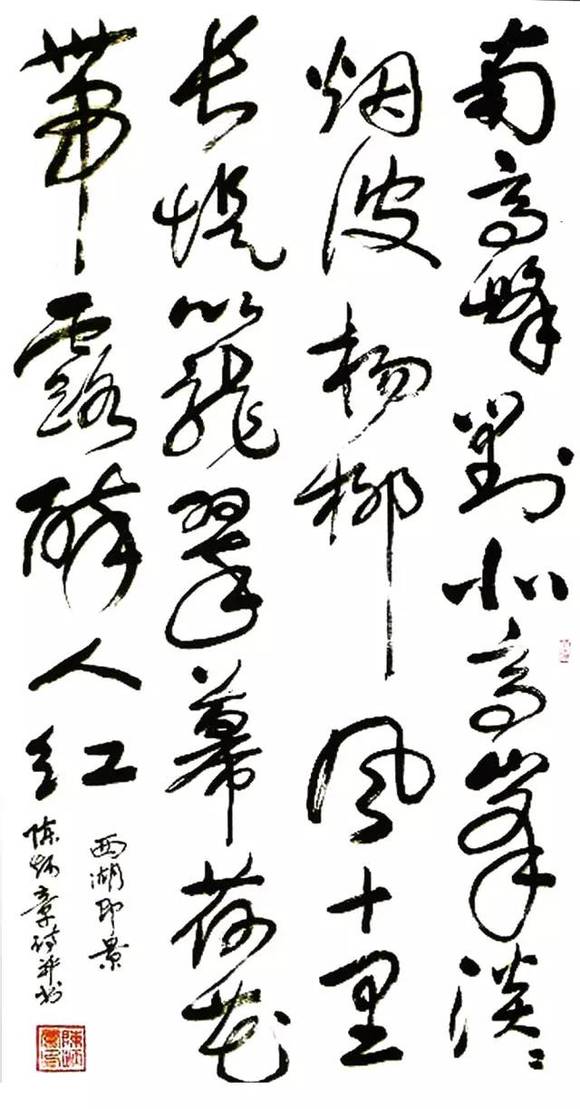 南高峰對北高峯淡〻
烟波杨柳风十里
长堤笼翠幕荷花
带露醉人红
西湖即景
陈炳章诗并书